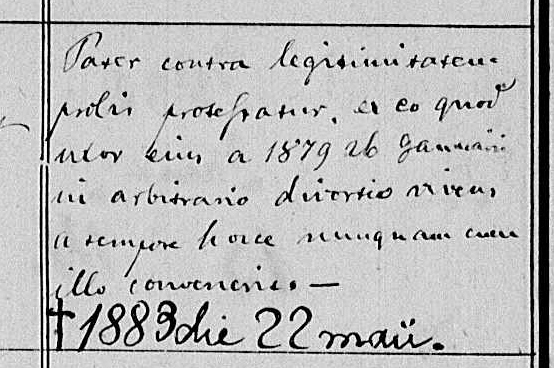 Pater contra legitimitatem
prolis protestatur, ex eo quod
uxor eius a 1879 26 Januarii
in arbitrario divortio vivens
a tempore hocce nunquam cum
illo convenerit. —
† 1883 die 22 maii.